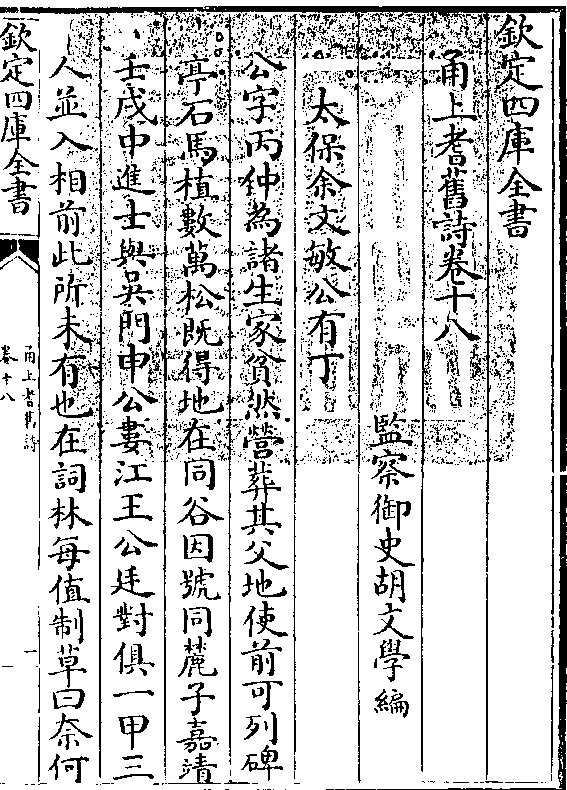 欽定四庫全書
甬上耆舊詩卷十八
監察御史胡文學編
太保余文敏公有丁
公字丙仲為諸生家貧然營葬其父地使前可列碑
亭石馬植數萬松既得地在同谷因號同麓子嘉靖
壬戌中進士與吳門申公婁江王公廷對俱一甲三
人並入相前此所未有也在詞林每值制草曰奈何
欽定四庫全書
甬上耆舊詩
卷十八
一